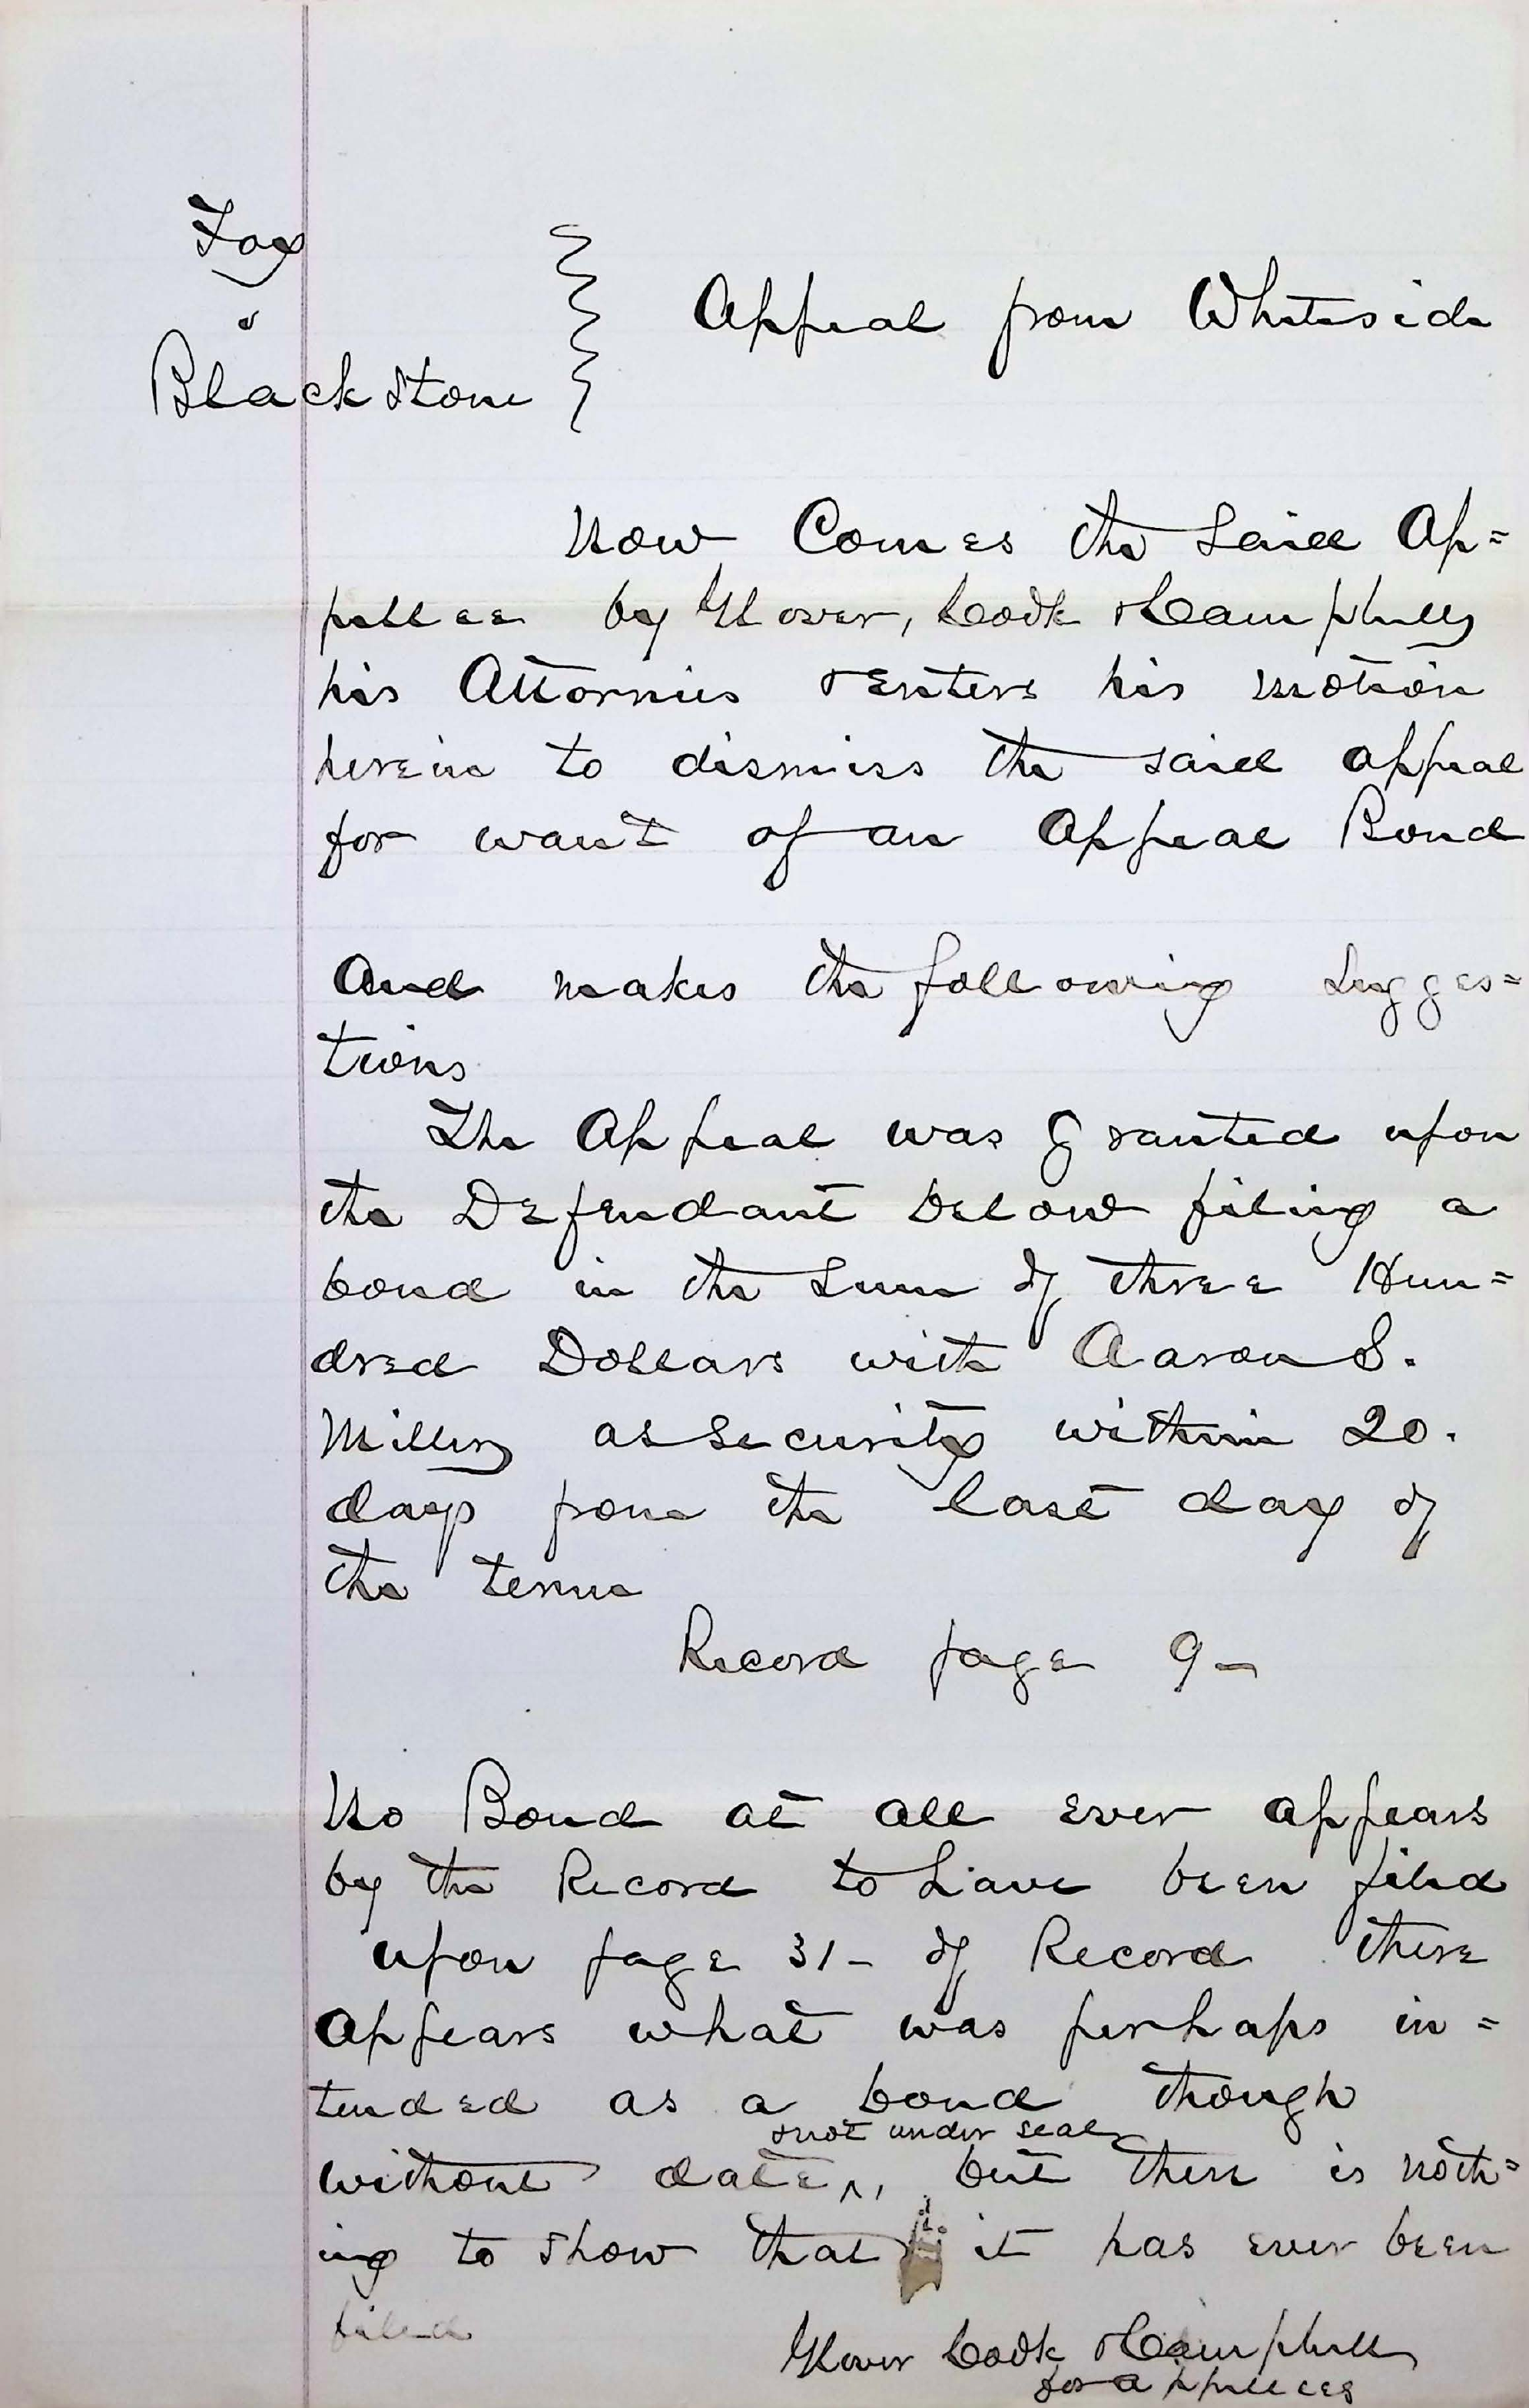 Fox
v
Blackstone
Appeal from Whiteside
Now Comes the said Ap=
pellee by Glover, Cook & Campbell
his Attornies & enters his motion
herein to dismiss the said appeal
for want of an Appeal Bond
And makes the following sugges=
tions
The Appeal was Granted upon
the Defendant below filing a
bond in the sum of three Hun=
dred Dollars with Aaron S.
Miller as security within 20.
days from the last day of
the term
Record page 9-
No Bond at all ever appears
by the Record to have been filed
upon page 31- of Record there
Appears what was perhaps in=
tended as a bond though
& not under seal
without date ^, but there is noth=
ing to show that it has ever been
filed
Glover Cook & Campbell
for appellees